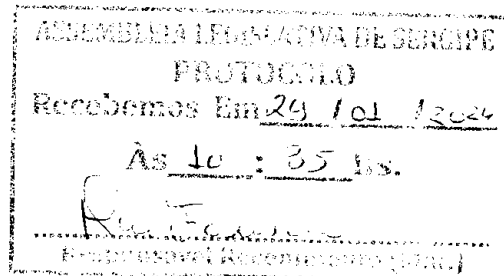 ASSEMBLEIA LEGISLATIVA DE SERGIPE
PROTOCOLO
Recebemos Em 29 / 01 / 2024
Às 10 : 35 hs.
Responsável Recebimento